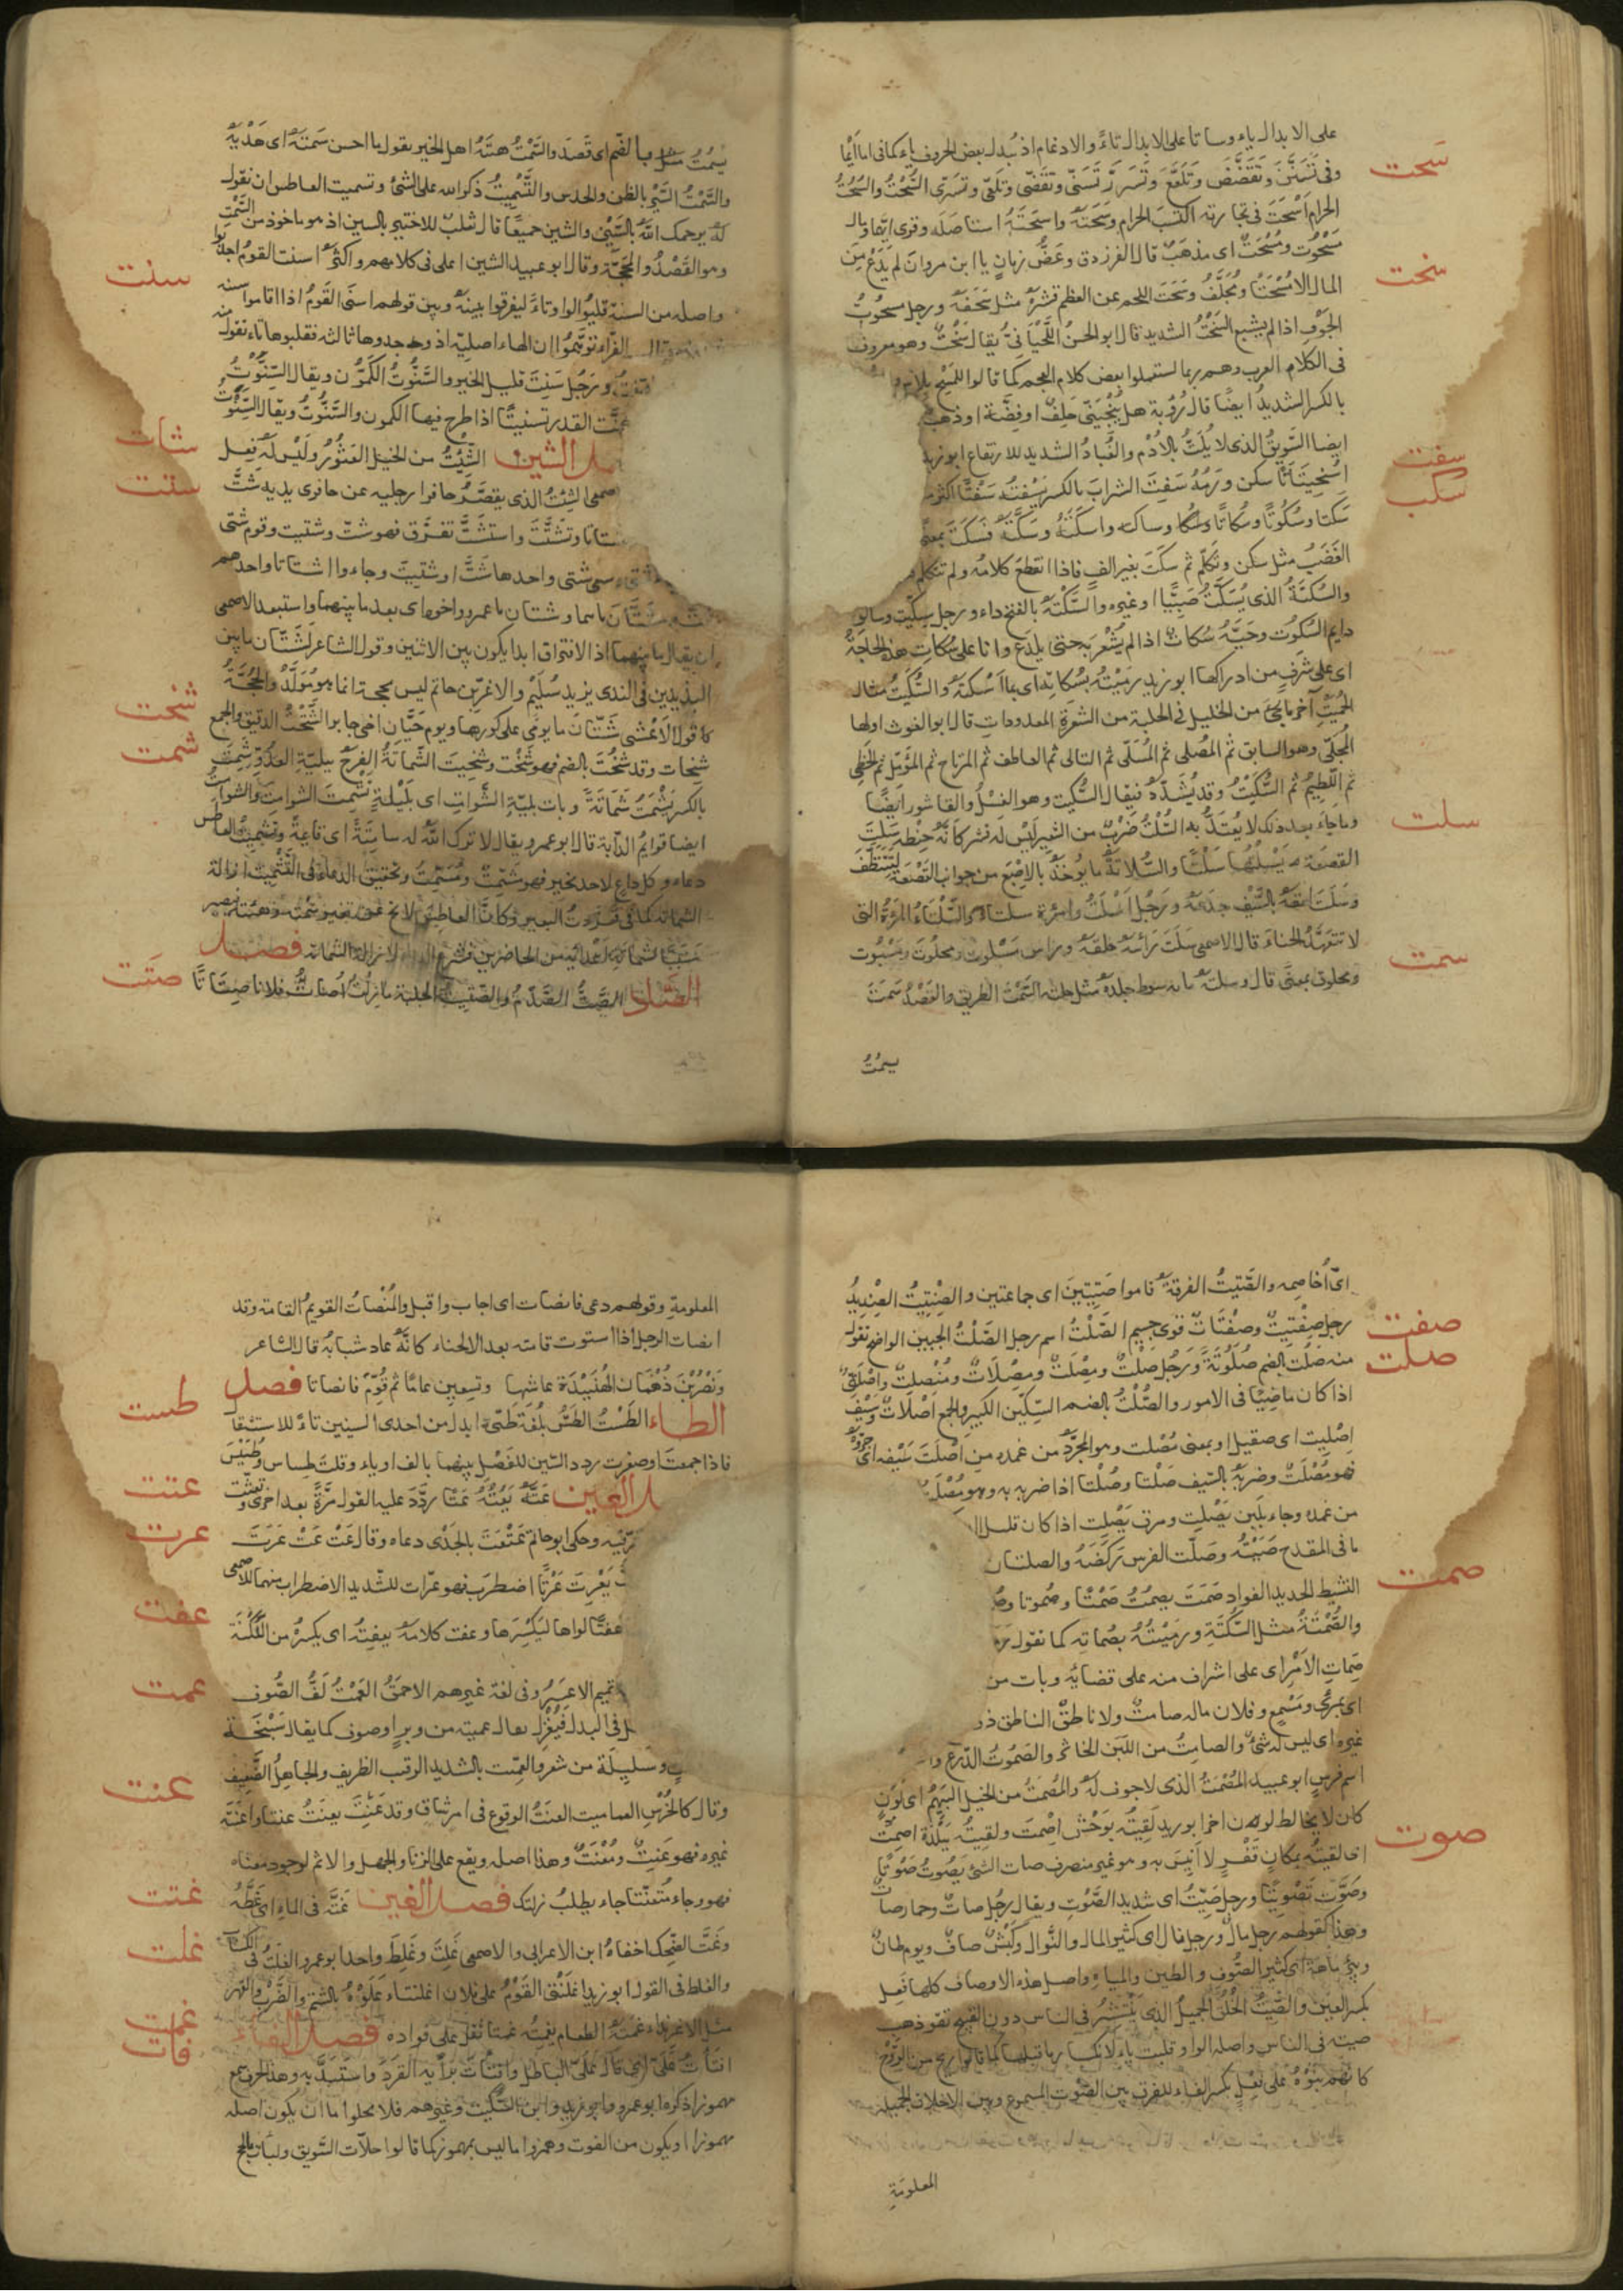 على الابدال ياء وساتا على الابدال تاءً والادغام اذ تُبدل بعض الحروف ياء كما فى اما ايما
سَحت
وفى تَسَنَّنَ وتَقَضَّضَ وتَلَعَّعَ وتَسَرَّرَ تَسَنّى وتقضّى وتلعّى وتسرّى السُّحْتُ والسُّحُتُ
الحرام اَسْحَتَ فى تجارته اكتسب الحرام وسَحَتَهُ واسحَتَهُ استاصله وقرى بهما ومال
مَسْحُوت ومُسْحَتٌ اى مذهَبٌ قال الفرزدق وعَضُّ زمانٍ يا ابن مروان لم يَدَعْ مِنَ
سخت
المال الا مُسْحَتًا او مُجَلَّفُ وسَحَتَ اللحم عن العظم قشرهُ مثل سَحَفَهُ ورجل مسحوتُ
الجَوْفِ اذا لم يشبع السَّخْتُ الشديد قال ابو الحسن اللَّحْيَانِىُّ يقال سَخْتٌ وهو معروف
فى الكلام العرب وهم ربما استعملوا بعض كلام العجم كما قالوا للمِسْحِ بِلاس
بالكسر الشديدُ ايضًا قال رُؤبة هل يُنْجِيَنِّى حَلِفٌ او فِضَّة او ذهب
سفت
ايضا السَّوِيقُ الذى لا يُلَتُّ بالاُدْم والغُبَارُ الشديد للارتفاع ابو زيد
سكت
اسْخِيتَاتًا سكن وَرَمُهُ سَفِتَ الشرابَ بالكسر يَسْفَتُهُ سَفْتًا اكثر منه
سَكتا وسُكُوتًا وسُكاتًا وساكته واسكَتَهُ وسَكَّتَهُ فسَكَتَ بمعنى
الغَضَبُ مثل سكن وتَكَلَّم ثم سكت بغير الف فاذا انقطع كلامُه ولم تتكلم
والسُّكتَةُ الذى يُسَكَّتُ صَبِيًّا او غيره والسَّكْتَةُ بالفتح داء ورجل سِكِّيت وساكوت
دايم السكوت وحَيَّةٌ سُكاتٌ اذا لم يُشْعَر بَه حتى يلدَغ وانا على سُكاتِ هذا الحاجة
اى على شرفٍ من ادراكها ابو زيد رميتُه بسُكاتِه اى بما اَسْكتَهُ والسُّكَيْتُ مثال
الكُمَيْتِ آخر ما يجئ من الخيل فى الحلبة من الشعرة المعدودات قال ابو الغوث اولها
المجلّى وهو السابق ثم المُصلى ثم المُسَلّى ثم التالى ثم العاطف ثم المرتاح ثم المؤمّل ثم الحظى
ثم اللَّطِيمُ ثم السُّكَيْتُ وقد يُشَدَّدُ فيقال السُّكّيت وهو الفِسْكُل والقاشور ايضًا
سلت
وما جاء بعد ذلك لا يُعْتَدُّ به السُّلْتُ ضَرْبٌ من الشعير لَيْسَ لَه قشر كانّه حِنطة سَلَتَ
القصعَة يَسْلتُها سَلْتًا والسُّلاتَةُ ما يُؤخَذُ بالاِصْبَع من جوانب القَصْعَة لتَتَنَظَّفَ
وسَلَتَ انفَهُ بالسَّيْفِ جدعَهُ ورَجُلٌ اَسْلَتُ وامرءة سلتاء والسَّلْتَاءُ المرءةُ التى
لا تتعهّدُ الحِنّاءَ قال الاصمعى سَلَتَ رَأسَهُ حلقَهُ وراس مَسْلوت ومحلُوت ومَسْبُوت
سمت
ومحلوق بمعنًى قال وسلتَه مائة سوط جلدَهُ مثل حلته السَّمْتُ الطريق والقَصْدُ سَمَتَ
يسمُتُ
يسمُتُ مثل بالضّم اى قَصَدَ والسَّمْتُ هيئَةُ اهل الخير يقول ما احسن سَمتَهُ اى هَدْيَهُ
والسَّمْتُ السَّيْرُ بالظن والحدس والتَّسْمِيتُ ذكر الله على الشئ وتسميت العاطس ان تقول
لَه يرحمك اللهُ بالسّين والشين جميعًا قال ثعلبٌ للاختير بالسين اذ هو ماخوذ من السَّمْتِ
وهو القَصْدُ والمحَجَّة وقال ابو عبيد الشين اعلى فى كلامهم واكثر اسنت القومُ اجدبُوا
سنت
واصله من السنة قلبُوا الواو تاءً ليفرقوا بينهُ وبين قولهم اسنَى القَومُ اذا اقاموا سنة
الفرّاء توهَّمُوا ان الهاء اصليّة اذ وجدوها ثالثة فقلبوها تاء تقول منه
ورَجُل سَنِتٌ قليل الخير والسَّنُّوتُ الكَمُّون ويقال السِّنَّوْتُ
سنّت القدر تسنيتًا اذا طرح فيها الكمون والسَّنُّوتُ ويقال السِّنَّوتُ
شات
فصل الشين الشَّئِيتُ من الخيل العَثُورُ ولَيْسَ لَه فِعل
شتت
الاصمعى الشئيتُ الذى يقصُرُ حافرا رجليه عن حافرى يديه شَتَّ
شتاتا وتشَتَّتَ واستَشَتَّ تفرَّق فهو شتّ وشتيت وقوم شتى
شتى واحدها شَتٌّ او شتيت وجاءوا اشتاتا واحدهم
شَتَّانَ ما هما وشتان ما عمرو واخوه اى بعد ما بينهما واستبعد الاصمعى
ان يقال ما بينهما اذ الافتراق ابدا يكون بين الاثنين وقول الشاعر لَشَتّان ما بين
اليزيدين فى الندى يزيد سُلَيْم والاغرّ بن حاتم ليس بحجة انما هو مُوَلَّدٌ والحُجَّةُ
شخت
كقول الاَعْشى شَتّان ما يومى على كورها ويوم حَيّان اخى جابر الشَّخْتُ الدقيق والجمع
شمت
شِخات وقد شخُتَ بالضم فهو شَخْت وشخِيت الشَّماتَةُ الفرَحُ ببليّةِ العدُوِّ شَمِتَ
بالكسر يَشْمَتُ شَمَاتَةً وبات بليلة الشَّوامِت اى بلَيْلة تُشْمِتُ الشوامِتَ والشوامِتُ
ايضا قوايمُ الدّابة قال ابو عمرو يقال لا ترك اللهُ له شامِتَةً اى قائمةً وتشميتُ العاطس
دعاءه وكل داعٍ لاحد بخير فهو مُشَمِّتٌ ومُسَمِّتٌ وتحقيق الدعاء فى التَّشْمِيت ازالة
الشماتة كما فى قرّدتُ البعير وكانّ العاطس
من الحاضرين فشرع لازالة الشماتة فصل
صتَت
الصّاد الصَّتُّ الصَّدْمُ والصَّتِيتُ الجلبة ما زِلْتُ اُصَاتُّ فلانا صِتَاتًا
اى اُخاصِمه والصَّتِيتُ الفرقةُ قاموا صَتِيتَيْنِ اى جماعتين والصِّنْتِيتُ الصِّنْدِيدُ
صفت
رجل صِفْتِيتٌ وصِفْتَاتٌ قوى جسيم الصَّلْتُ اسم رجل الصَّلْتُ الجبين الواضح تقول
صلت
منه صَلُتَ بالضم صُلُوتَةً ورَجُلٌ صَلْتٌ ومِصْلَتٌ ومِصْلَاتٌ ومُنْصلِتٌ واصْلَتِىٌّ
اذا كان ماضِيًا فى الامور والصُّلْتُ بالضم السِّكّين الكبير والجمع اَصْلاتٌ وسَيْفٌ
اِصْلِيت اى صقيل او بمعنى مُصْلَت وهو المجرَّد من غمده من اَصْلَتَ سَيْفه اى جرّدَهُ
فهو مُصْلَتٌ وضربَهُ بالسّيف صَلْتًا وصُلْتًا اذا ضربه به وهو مُصْلَت
من غمده وجاء بلَبَنٍ يَصْلِت ومرق يَصْلِت اذا كان قليل
ما فى القدح صَبَبْتُهُ وصَلَتّ الفرس رَكَضَهُ والصلتان
صمت
النشيط الحديد الفواد صَمَتَ يصمُتُ صَمْتًا وصُموتا
والصُّمْتَةُ مثل السُّكْتَةِ ورَمَيْتُهُ بصُماتِه كما تقول
صِماتِ الاَمْرِ اى على اشراف منه على قضائه وبات من
اى بمرأًى ومَسْمَعٍ وفلان ماله صامتٌ ولا ناطقٌ الناطق
غيره اى ليس لَه شئ والصامِتُ من اللَّبَن الخاثر والصَمُوتُ الدّرع
اسم فرس ابو عبيد المُصْمَتُ الذى لا جوف له والمُصْمَتُ من الخيل البَهِيمُ اى لَوْنٍ
كان لا يخالط لونه لون اخر ابو زيد لقِيتُه بوَحْشِ اِصْمِتَ ولقِيتُه ببلْدَةِ اِصمِتَ
صوت
اذا لقيتُه بمكانٍ قَفْرٍ لا اَنِيسَ به وهو غير منصرف صات الشئُ يَصُوتُ صَوْتًا
وصَوَّتَ تَصْوِيتًا ورجل صَيِّتٌ اى شديد الصَّوْت ويقال رجُل صاتٌ وحمار صاتٌ
وهذا كقولهم رجل مالٌ ورجل نالٌ اى كثير المال والنَّوال وكَبْشٌ صافٌ ويوم طانٌ
وبئر ماهَة اى كثير الصُّوف والطين والمياه واصل هذه الاوصاف كلها فَعِل
بكسر العين والصِّيتُ الذِّكْرُ الجميلُ الذى يَنْتَشِرُ فى الناس دون القبيح تقول ذهب
صيته فى الناس واصله الواو قلبت ياء لانكسار ما قبلها كما قالوا ريح من الرَّوْح
كانهم بنَوْهُ على فِعْلٍ بكسر الفاء للفرق بين الصَّوت المسموع وبين الاخلاق الجميلة
المعلومَةِ
المعلومة وقولهم دعى فانصات اى اجاب واقبل والمُنْصاتُ القويمُ القامة وقد
انصات الرجل اذا استوت قامته بعد الانحناء كانّهُ عاد شبابُه قال الشاعر
طست
ونَصْرُ بْنُ دُهْمَانَ الهُنَيْدَةَ عاشها وتسعين عامًا ثم قُوِّمَ فانصاتا فصل
الطاء الطَّسْتُ الطَّسُّ بلُغة طَىّ ابدل من احدى السينين تاءً للاستثقال
فاذا جمعتَ او صغرت رددت السّين للفَصْل بينهما بالف او ياء وقلتَ طِساس وطُسَيْس
عتت
فصل العين عَتَّهُ يَعُتُّهُ عَتًّا ردَّدَ عليه القول مَرَّةً بعد اخرى
عرت
وحكى ابو حاتم عَتْعَتَ بالجَدْى دعاه وقال عَتْ عَتْ عَرَتَ
يَعْرِت عَرْتًا اضطرَب فهو عرّات للشديد الاضطراب
عفت
عفتًا لواها ليَكْسِرَها وعفت كلامهُ يعفِتُه اى يكسرُ من اللُّكْنَة
عمت
تميم الاعسَرُ وفى لغة غيرهم الاحمقُ العَمْتُ لَفُّ الصُّوف
فى اليد لِيُغْزَلَ يقال عميتة من وبرٍ او صوف كما يقال سَبِيخَة
وسَلِيلَة من شعر والعِمّيت بالتشديد الرقيب الظريف والجاهلُ الضَّعِيفُ
عنت
وقال كالخُرْسِ العماميت العَنَتُ الوقوع فى امرشاق وقد عَنِتَ يعنَتُ عنتا واَعْنَتَهُ
غيره فهو عَنِتٌ ومُعْنَتٌ وهذا اصله ويقع على الزنا والجهل والاثم لوجود معناه
غتت
فهو وجاء مُتَعنِّتا جاء يطلب زلتك فصل الغين غَتَّهُ فى الماءِ اى غَطَّهُ
غلت
وغَتَّ الضحِك اخفاهُ ابن الاعرابى والاصمعى غَلِتَ وغَلِطَ واحد ابو عمرو الغلتُ فى الحساب
والغلط فى القول ابو زيد اِغْلَنْتَى القَوْمُ على فلان اغلنتاء عَلَوْهُ بالشتم والضَّرب والقهر
غمت
مثل الاغرنداء غَمَتَهُ الطعام يغمِتُه غمتا ثقل على فواده فصل الفاء
فات
افتَأَتَ عَلَىَّ اى قال عَلَىَّ الباطل وافتأَتَ برأيه انفرَدَ واستَبَدَّ به وهذا الحرف سمع
مهموزا ذكره ابو عمرو وابو زيد وابن السّكّيت وغيرهم فلا يخلوا اما ان يكون اصله
مهموزا او يكون من الفوت وهمزوا ما ليس بمهموز كما قالوا حلّأت السَّويق ولبّأت بالحج